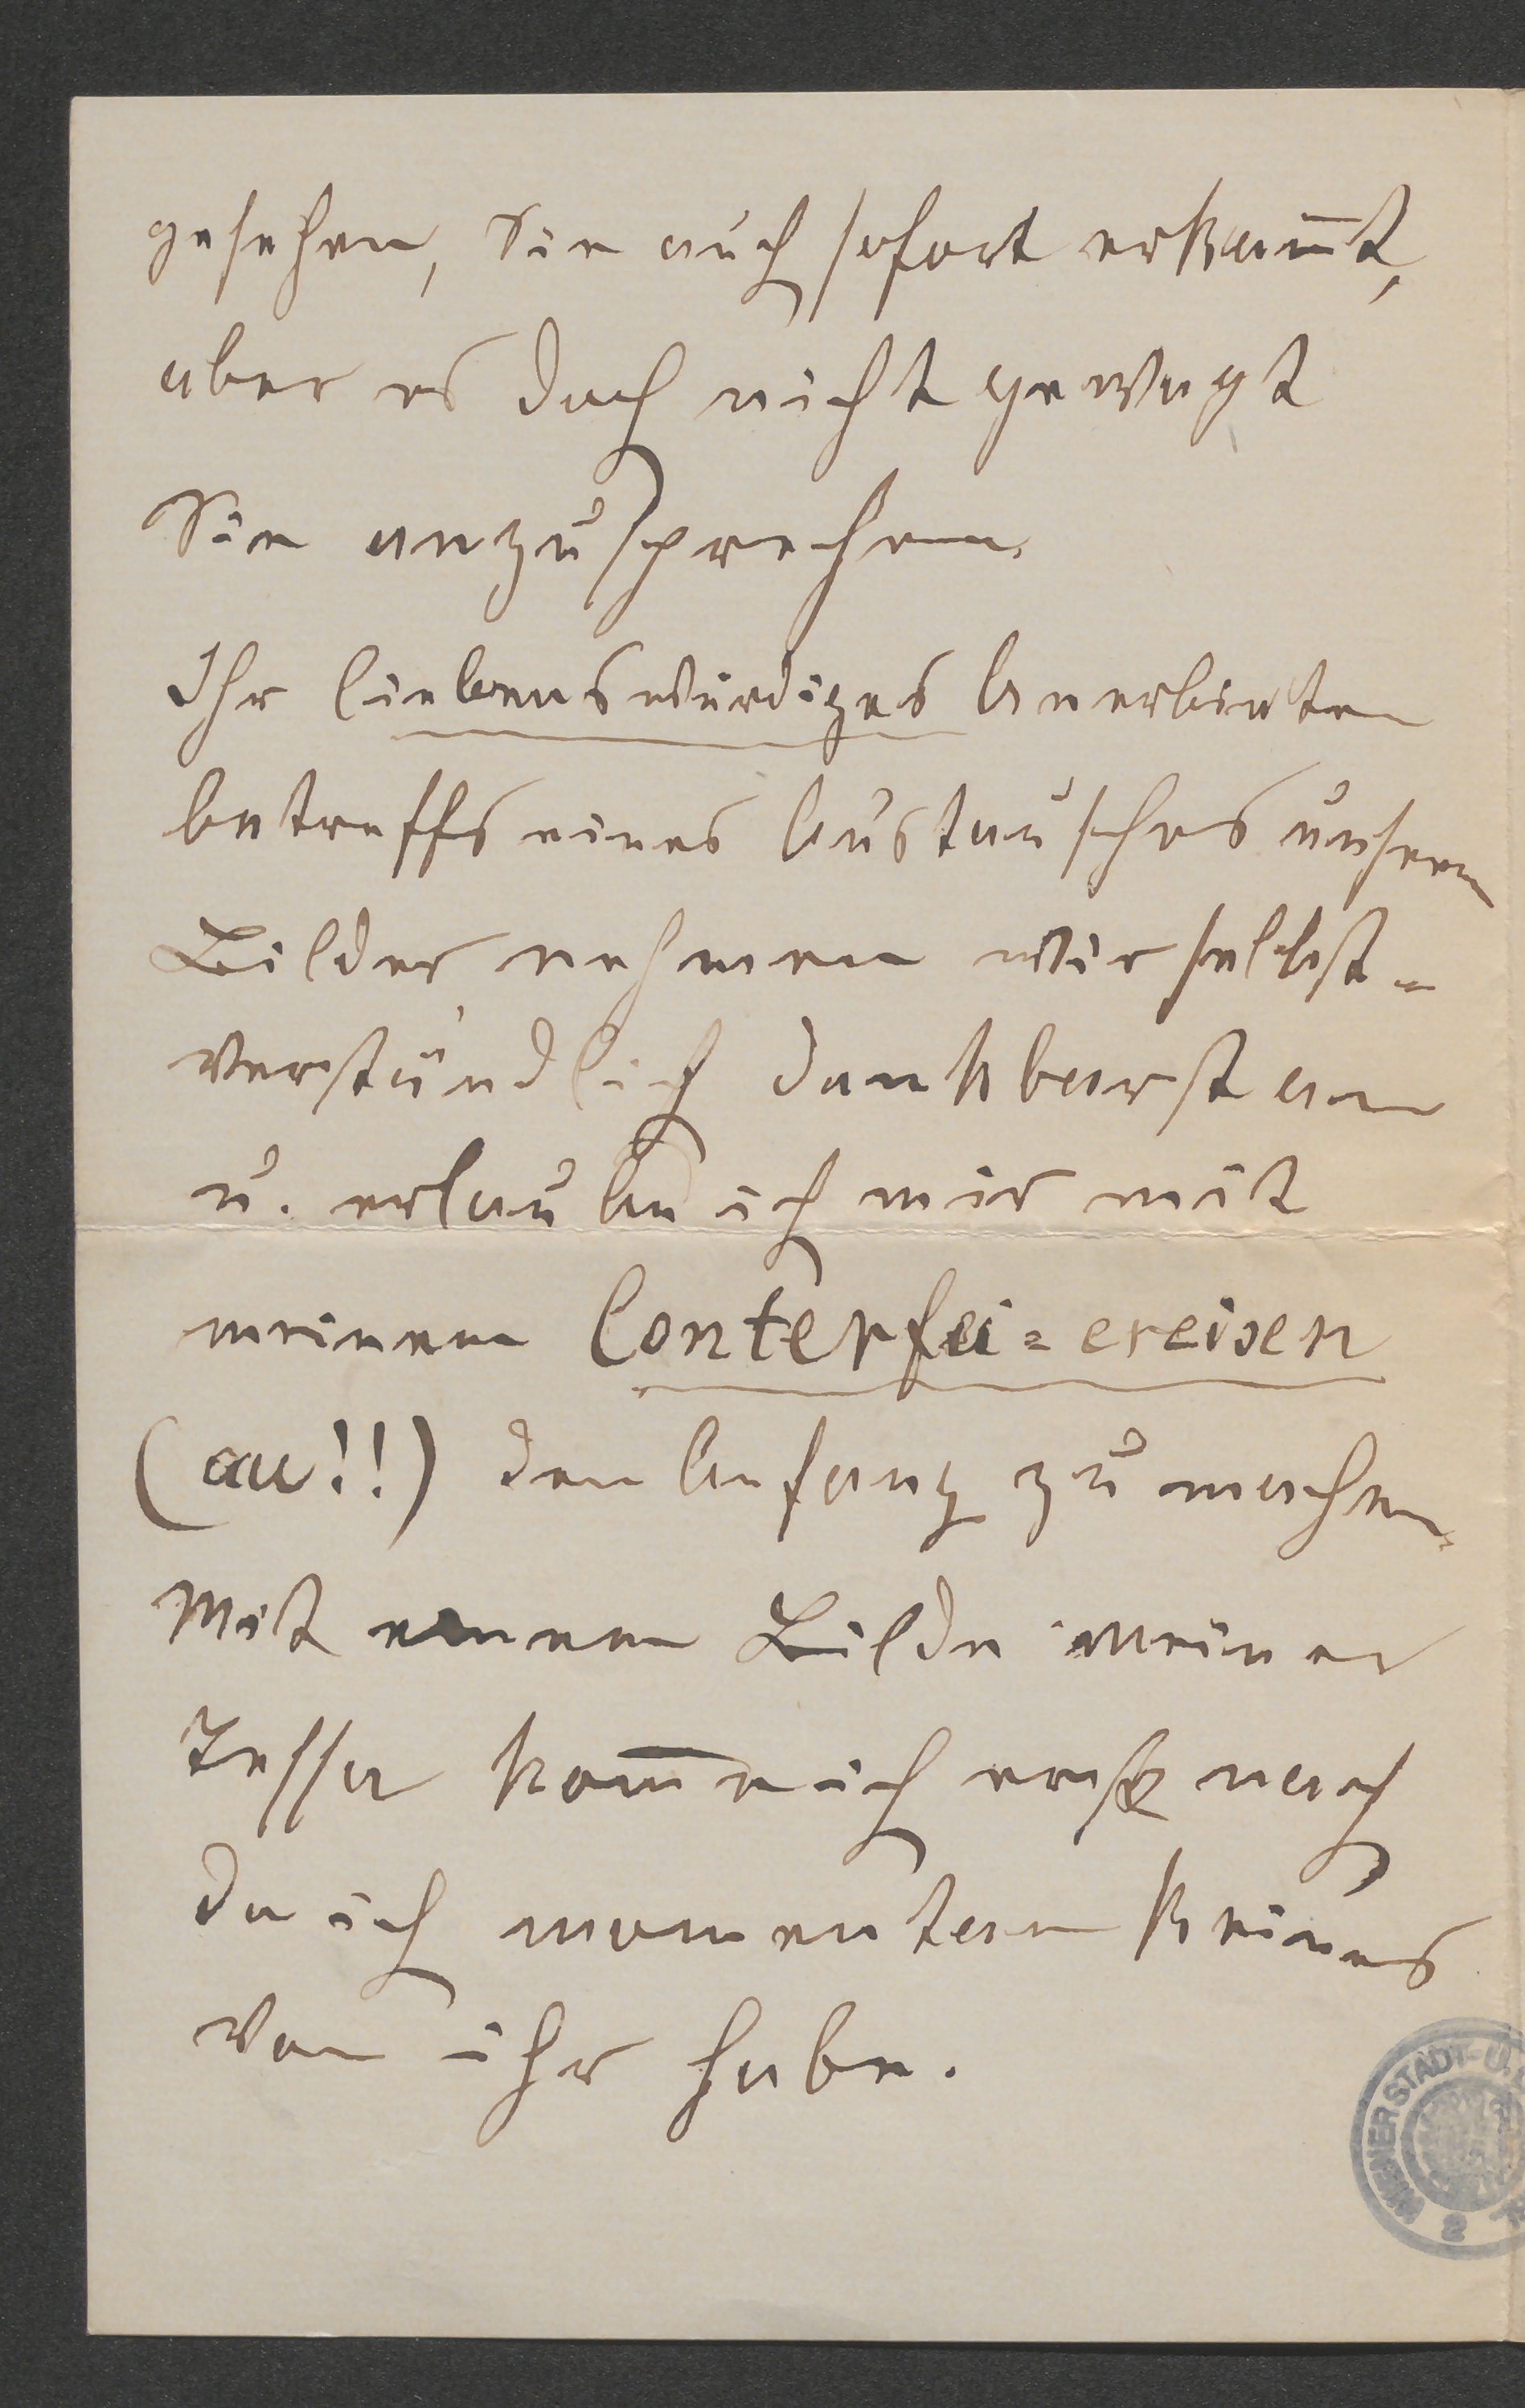 gesehen, Sie auch sofort erkannt,
aber es doch nicht gewagt
Sie anzusprechen.
Ihr liebenswürdiges Anerbieten
betreffs eines Austausches unserer
Bilder nehmen wir selbst-
verständlich dankbarst an
u. erlaube ich mir mit
meinem Conterfei-ereisen
(au!!) den Anfang zu machen.
Mit einem Bilde meiner
komme ich erst nach
da ich momentan keines
von ihr habe.
WIENER STADT- U.
2